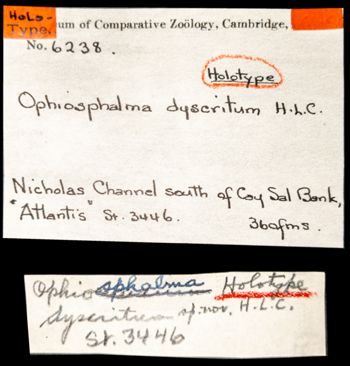 HOLO-
TYPE.
um of Comparative Zoölogy, Cambridge,
No. 6238.
Holotype
Ophiosphalma dyscritum H.L.C.
Nicholas Channel south of Cay Sal Bank,
"Atlantis" St. 3446. 360fms.
Ophiosphalma Holotype
dyscritum sp. nov. H.L.C.
St. 3446